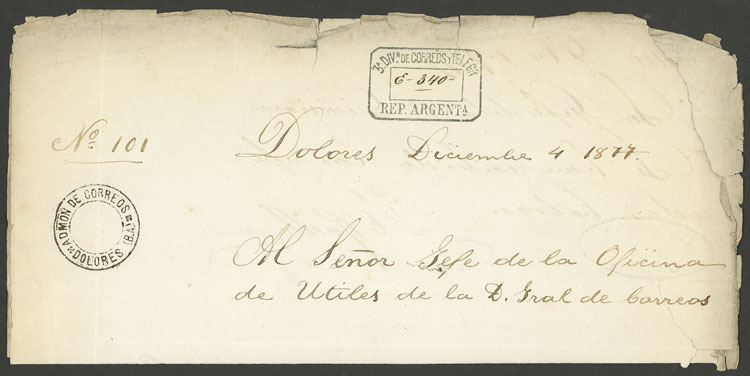 3ª DIVⁿ DE CORREOS Y TELEGˢ
E - 340 -
REP. ARGENTª
Nº 101
Dolores Diciembre 4 1877.
ADMON DE CORREOS
DOLORES (B.A.)
Al Señor Gefe de la Oficina
de Utiles de la D. Gral de Correos